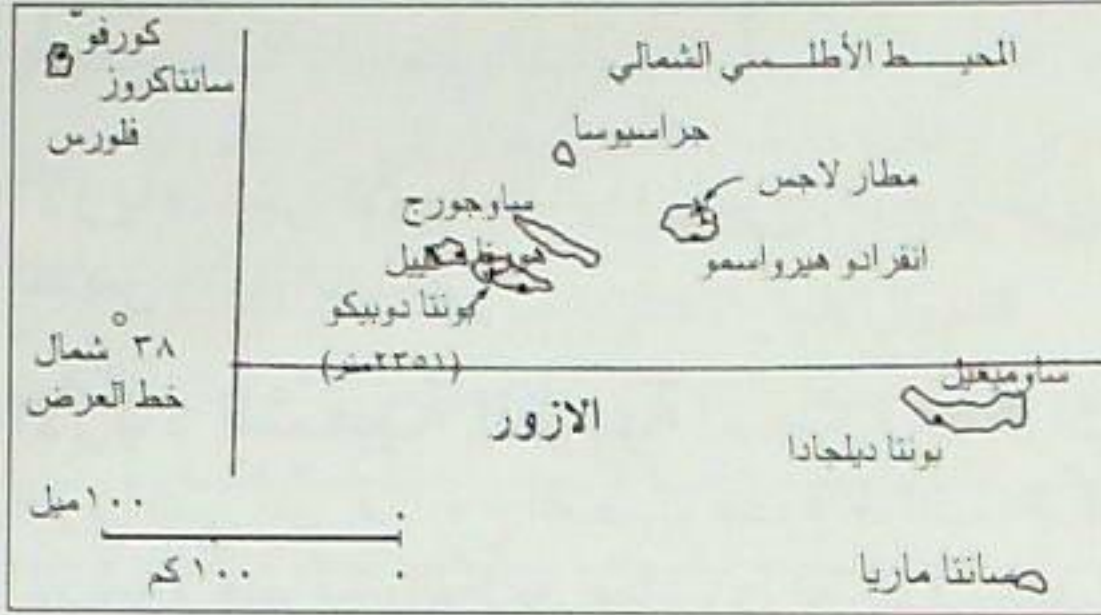 كورفو
سانتاكروز
فلورس
المحيط الأطلسي الشمالي
جراسيوسا
مطار لاجس
ساوجورج
انفرادو هيرواسمو
بونتا دوبيكو
(٢٣٥١متر)
٣٨° شمال
خط العرض
الازور
ساوميغيل
بونتا ديلجادا
١٠٠ ميل
٠
١٠٠ كم
٠
سانتا ماريا